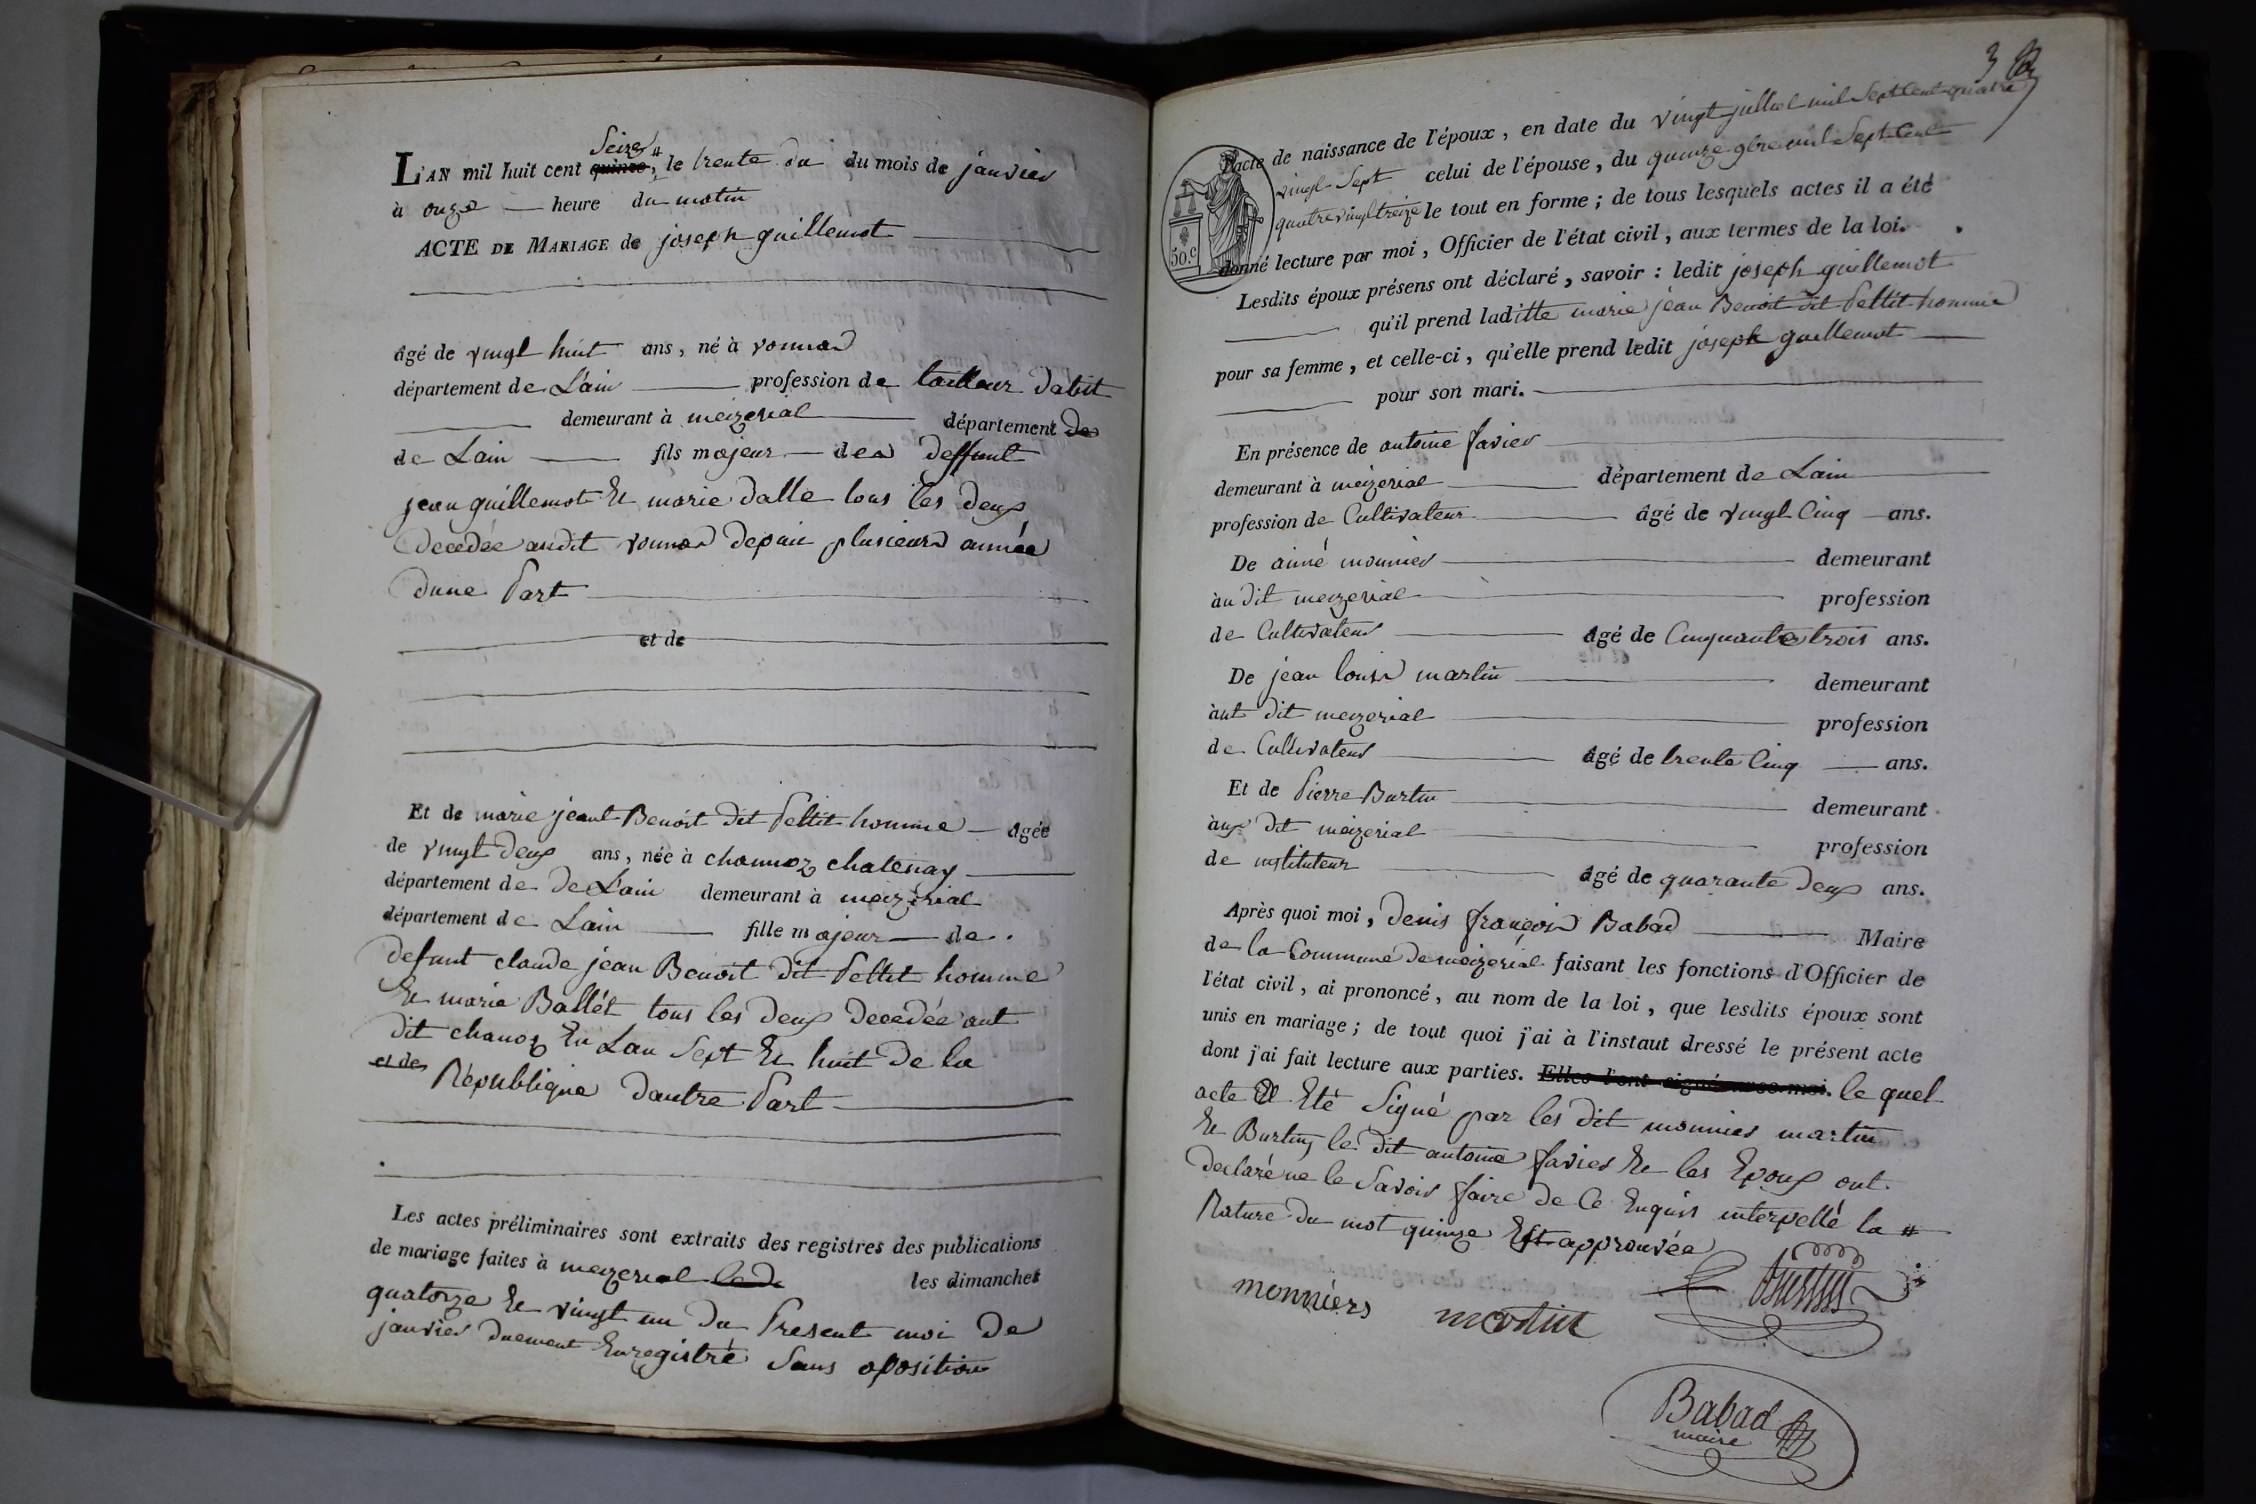 Seize #
L'AN mil huit cent quinze, le trente du du mois de janvier
à onze heure du matin
ACTE DE MARIAGE de joseph guillemot
âgé de vingt huit ans, né à vonnas
département de L'ain profession de tailleur dabit
demeurant à meizeriat département de
de Lain fils majeur des deffunt
jean guillemot Et marie dalle tous les deux
decedée audit vonnas depuis plusieurs année
dune Part
et de
Et de marie jeant Benoit dit Pettit homme âgée
de vingt deux ans, née à channoz chatenay
département de De L'ain demeurant à meizériat
département de Lain fille majeur de
defunt claude jean Benoit dit Pettit homme
Et marie Ballét tous les deux decedée aut
dit chanoz En Lan Sept Et huit De la
et de République Dautre Part
Les actes préliminaires sont extraits des registres des publications
de mariage faites à meizeriat les dimanches
quatorze Et vingt un du Present moi De
janvier duement Enregistré Sans oposition
3
l'acte de naissance de l'époux, en date du vingt juillet mil Sept Cent quatre
vingt Sept celui de l'épouse, du quinze 9bre mil Sept Cent
quatrevingt treize le tout en forme; de tous lesquels actes il a été
50.c
donné lecture par moi, Officier de l'état civil, aux termes de la loi.
Lesdits époux présens ont déclaré, savoir: ledit joseph guillemot
qu'il prend laditte marie jean Benoit dit Pettit homme
pour sa femme, et celle-ci, qu'elle prend ledit joseph guillemot
pour son mari.
En présence de antoine favier
demeurant à meizeriat département de Lain
profession de Cultivateur âgé de vingt Cinq ans.
De aimé monnier demeurant
àu dit meizeriat profession
de Cultivateur âgé de Cinquante trois ans.
De jean louis martin demeurant
àut dit meizeriat profession
de Cultivateur âgé de trente Cinq ans.
Et de Pierre Burtin demeurant
àux dit meizeriat profession
de instituteur âgé de quarante deux ans.
Après quoi moi, denis françois Babad Maire
de la Commune De meizeriat faisant les fonctions d'Officier de
l'état civil, ai prononcé, au nom de la loi, que lesdits époux sont
unis en mariage; de tout quoi j'ai à l'instant dressé le présent acte
dont j'ai fait lecture aux parties. Elles l'ont signé avec moi. le quel
acte a Eté Signé par les dit monnier martin
Et Burtin, le dit antoine favier Et les Epoux ont
declaré ne le Savoir faire de Ce Enquis interpellé la #
Rature du mot quinze Est approuvée
monniers martin Burtin
Babad
maire